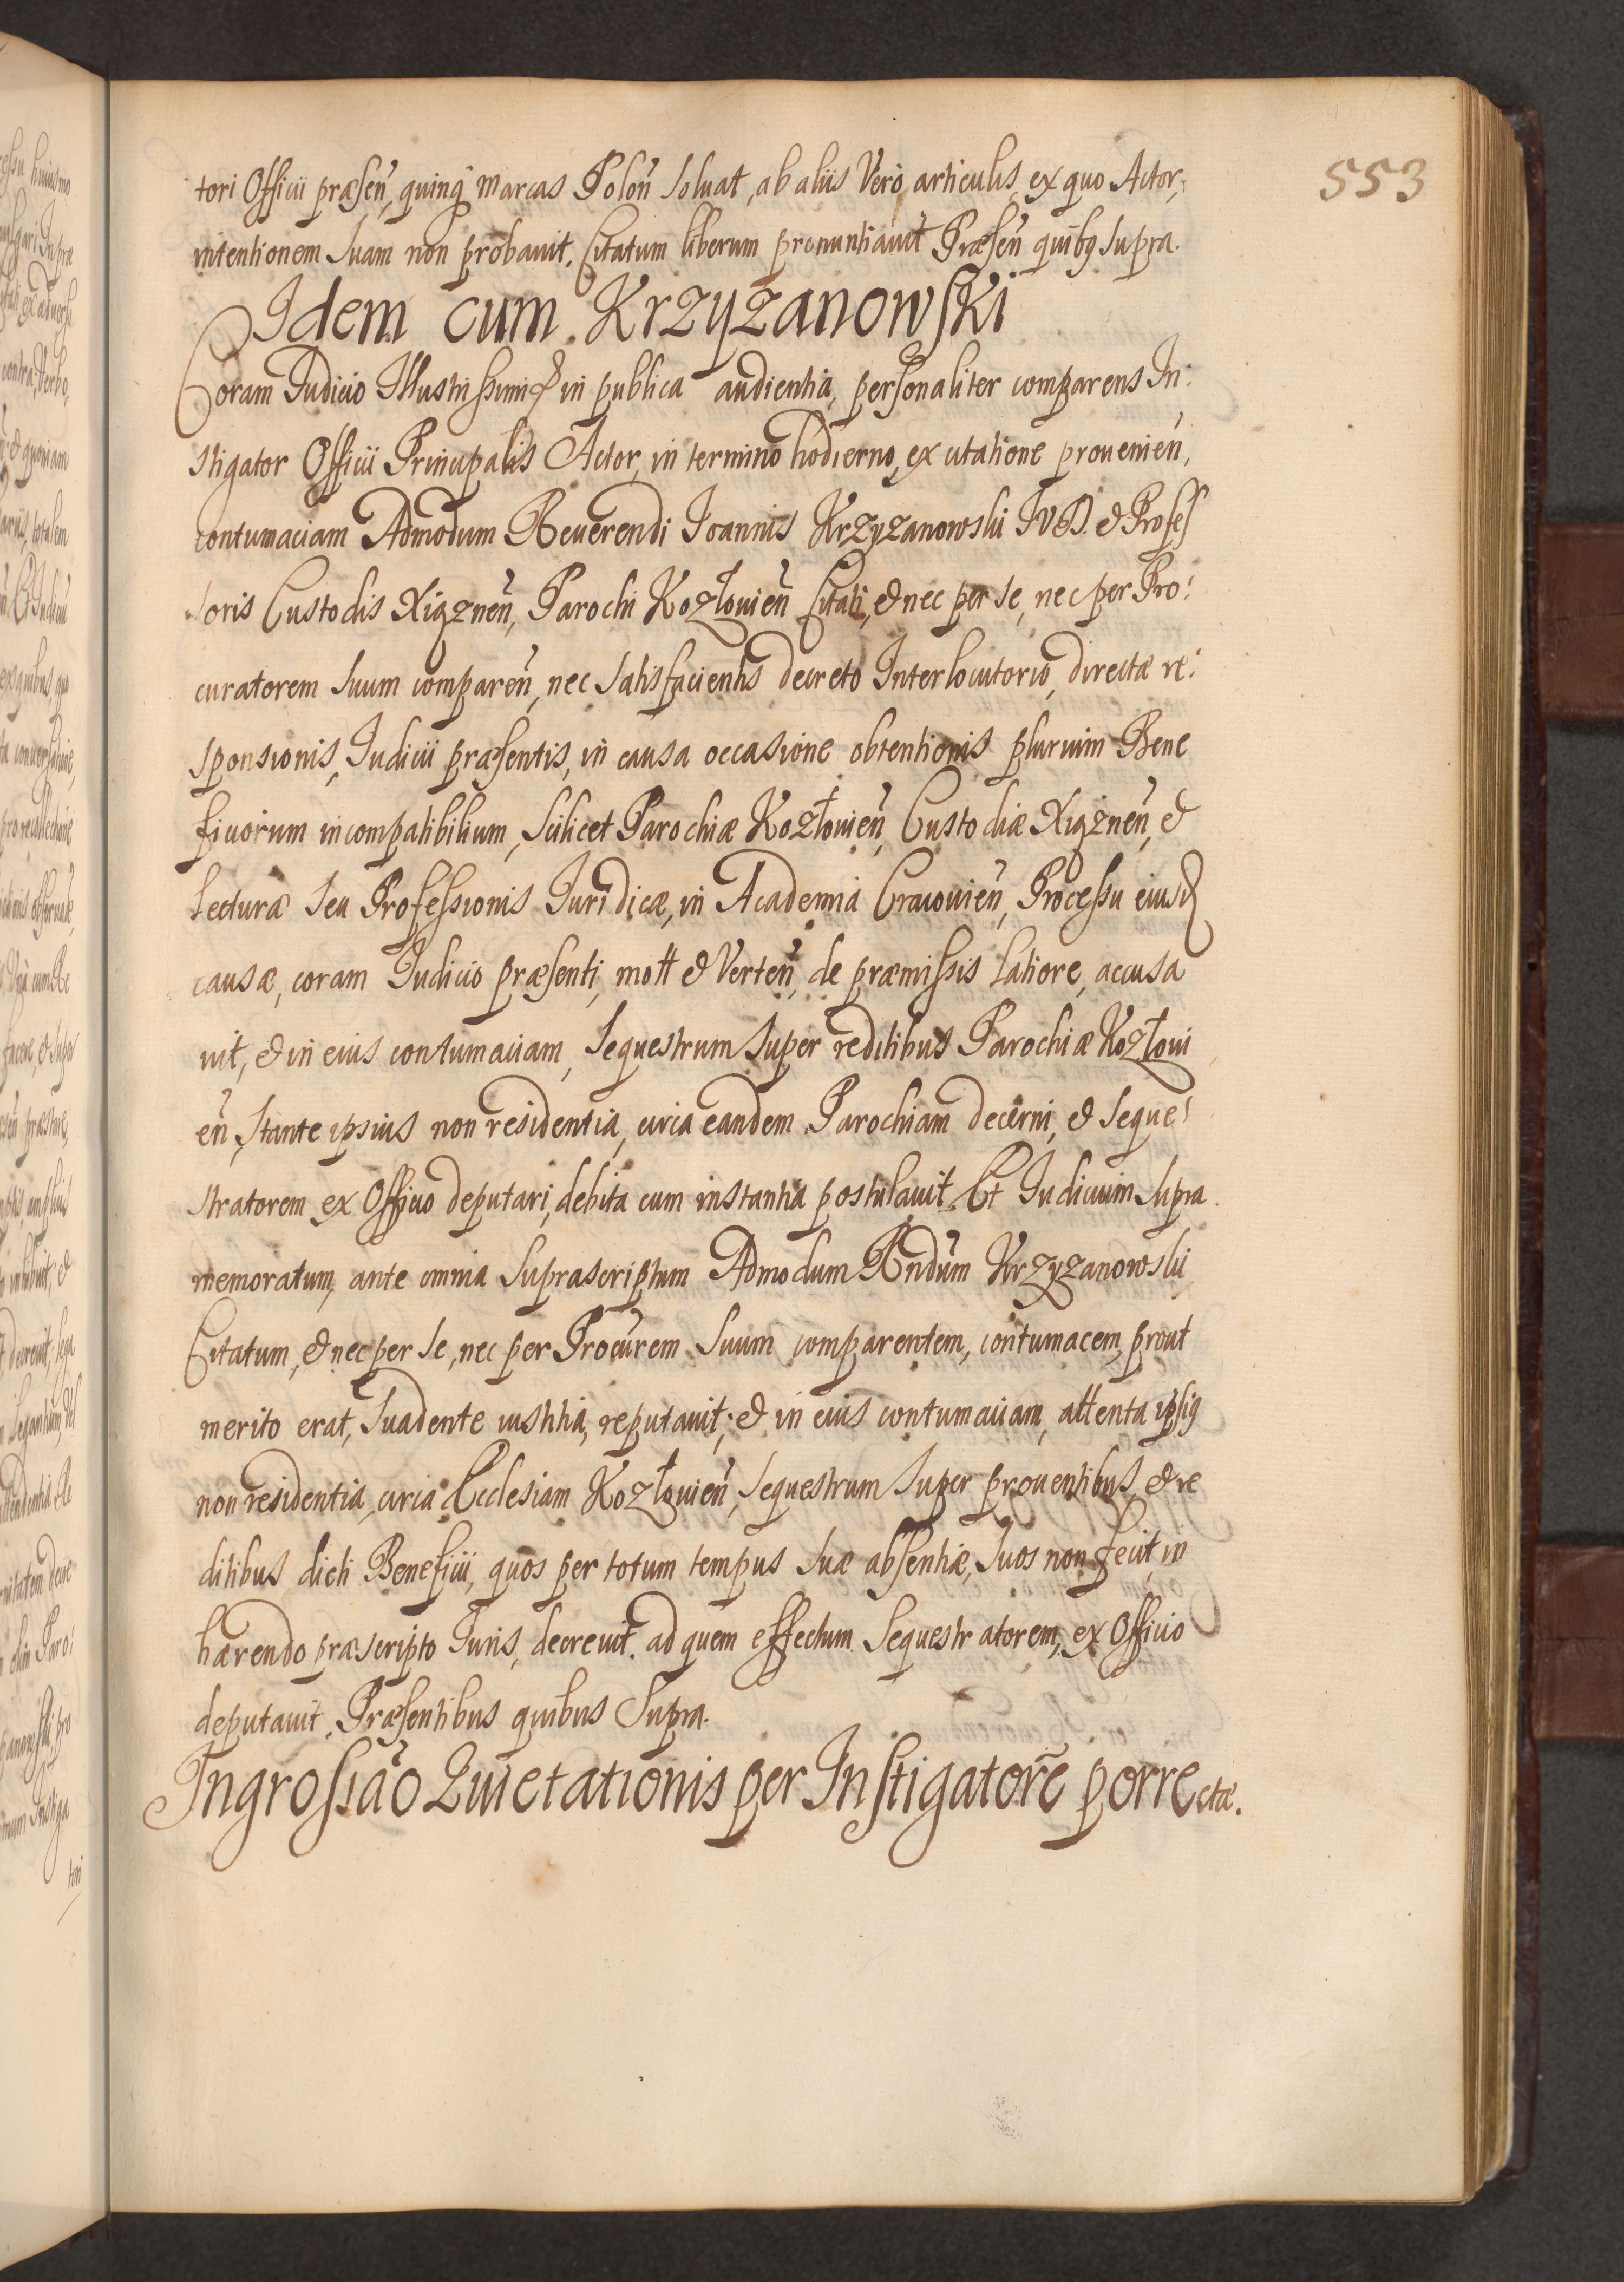 553
tori Officii præsen̄, quinq̨ marcas Polon̄ soluat, ab aliis Vero articulis, ex quo Actor,
intentionem suam non probauit, Citatum liberum pronuntiauit Præsen̄ quibꝯ supra.
Idem cum Krzyzanowski
Coram Iudicio Illustrissimi in publica audientia, personaliter comparens In:
stigator Officii Principalis Actor, in termino hodierno, ex citatione prouenien̄,
contumaciam Admodum Reuerendi Ioannis Krzyzanowski IVD. & Profes
soris Custodis Xiąznen̄, Parochi Kozłouien̄ Citati, & nec per se, nec per Pro:
curatorem suum comparen̄, nec satisfacientis decreto Interlocutorio, directæ re:
sponsionis, Iudicii præsentis, in causa occasione obtentionis plurium Bene
ficiorum incompatibilium, scilicet Parochiæ Kozłouien̄, Custodiæ Xiążnen̄, &
lecturæ seu Professionis Iuridicæ, in Academia Cracouien̄, Processu eiusd
causæ, coram Iudicio præsenti, mott & Verten̄, de præmissis latiore, accusa
uit, & in eius contumaciam, sequestrum super reditibus Parochiæ Kozłoui
en̄, stante ipsius non residentia, circa eandem Parochiam decerni, & seque:
stratorem ex Officio deputari, debita cum instantia postulauit. Et Iudicium supra
memoratum, ante omnia suprascriptum Admodum Rndūm Krzyzanowski
Citatum, & nec per se, nec per Procūrem suum comparentem, contumacem, prout
merito erat, suadente iustitia, reputauit; & in eius contumaciam, attenta ipsiꝯ
non residentia, circa Ecclesiam Kozłouien̄, sequestrum super prouentibus, & re
ditibus dicti Beneficii, quos per totum tempus suæ absentiæ, suos non fecit, in
hærendo præscripto Iuris, decreuit. ad quem effectum sequestratorem, ex Officio
deputauit, Præsentibus quibus supra.
Ingrossiāo Quietationis per Instigatorē porrectæ.